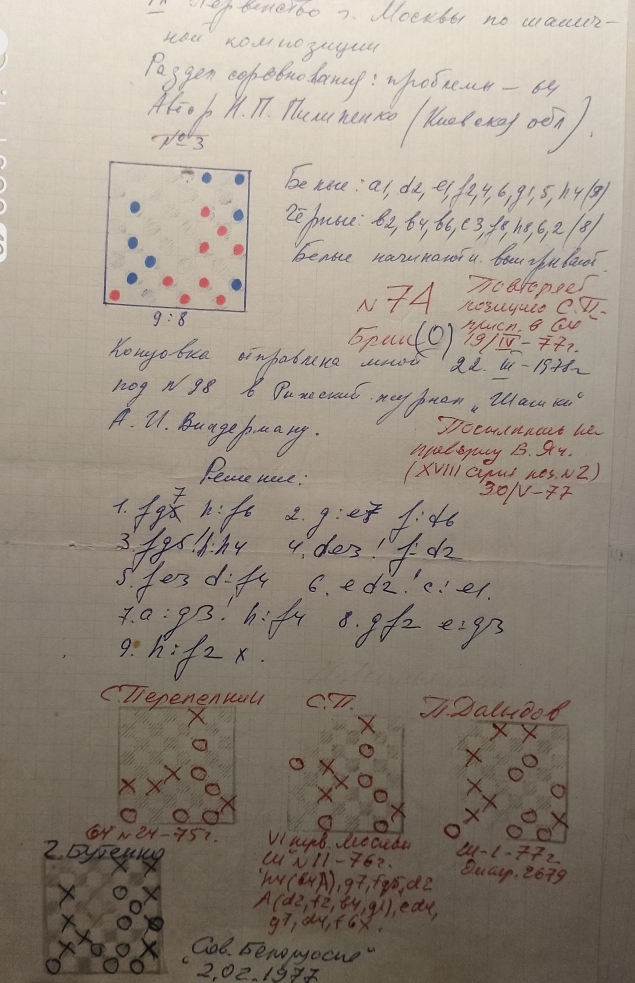 Первенство г. Москвы по шашеч-
ной композиции
Раздел соревнования: проблемы – 64
Автор Н.П. Пилипенко (Киевская обл).
№3
Белые: a1, d2, e1, f2,4,6, g1,5, h4 (9)
Чёрные: b2, b4, b6, c3, f8, h8,6,2 (8)
Белые начинают и выигрывают.
9:8
N 74
Повторяет
позицию С.П.
присп. в 64
19/IV-77г.
(0)
Концовка отправлена мной 22. III-1978г
под N 98 в Рижский журнал „Шашки"
А. И. Виндерману.
Посылалась на
проверку В. Яч.
(XVIII серия поз. N2)
30/V-77
Решение:
1. fg7 h:f6 2. g:e7 f:d6
3. fg5! h:h4 4. de3! f:d2
5. fe3 d:f4 6. ed2! c:e1.
7. a:g3! h:f4 8. gf2 e:g3
9. h:f2 x.
С. Перепелкин
С.П.
П. Давыдов
64 N24-75г.
VI перв. Москвы
Ш N11-76г.
h4 (64A), g7, fg5, d2
A (d2, f2, b4, g1), ed4,
g7, d4, f6x.
Ш-1-77г
Диагр. 2679
Г. Бутенко
„Сов. Белоруссия"
2.02.1977